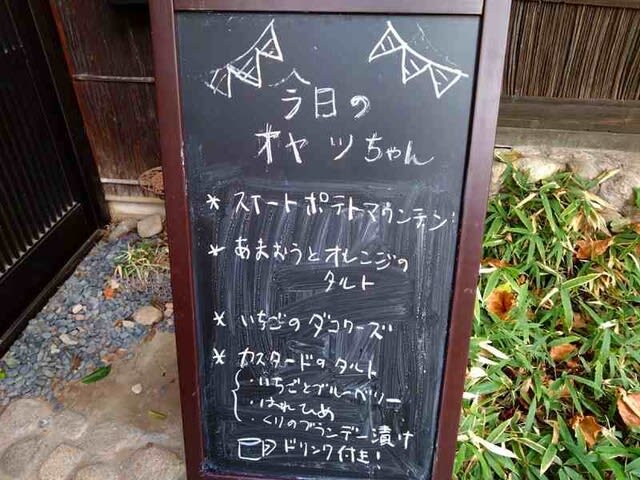 今日の
オヤツちゃん
* スイートポテトマウンテン!
* あまおうとオレンジの
タルト
* いちごのダコワーズ
* カスタードのタルト
・いちごとブルーベリー
・はれひめ
・くりのブランデー漬け
ドリンク付き!